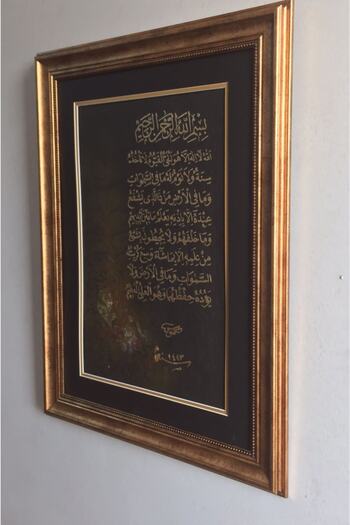 بِسْمِ اللَّهِ الرَّحْمَٰنِ الرَّحِيمِ
اللَّهُ لَا إِلَٰهَ إِلَّا هُوَ الْحَيُّ الْقَيُّومُ لَا تَأْخُذُهُ
سِنَةٌ وَلَا نَوْمٌ لَهُ مَا فِي السَّمَوَاتِ
وَمَا فِي الْأَرْضِ مَنْ ذَا الَّذِي يَشْفَعُ
عِنْدَهُ إِلَّا بِإِذْنِهِ يَعْلَمُ مَا بَيْنَ أَيْدِيهِمْ
وَمَا خَلْفَهُمْ وَلَا يُحِيطُونَ بِشَيْءٍ
مِنْ عِلْمِهِ إِلَّا بِمَا شَاءَ وَسِعَ كُرْسِيُّهُ
السَّمَوَاتِ وَمَا فِي الْأَرْضِ وَلَا
يَؤُدُهُ حِفْظُهُمَا وَهُوَ الْعَلِيُّ الْعَظِيمُ
١٤١٣